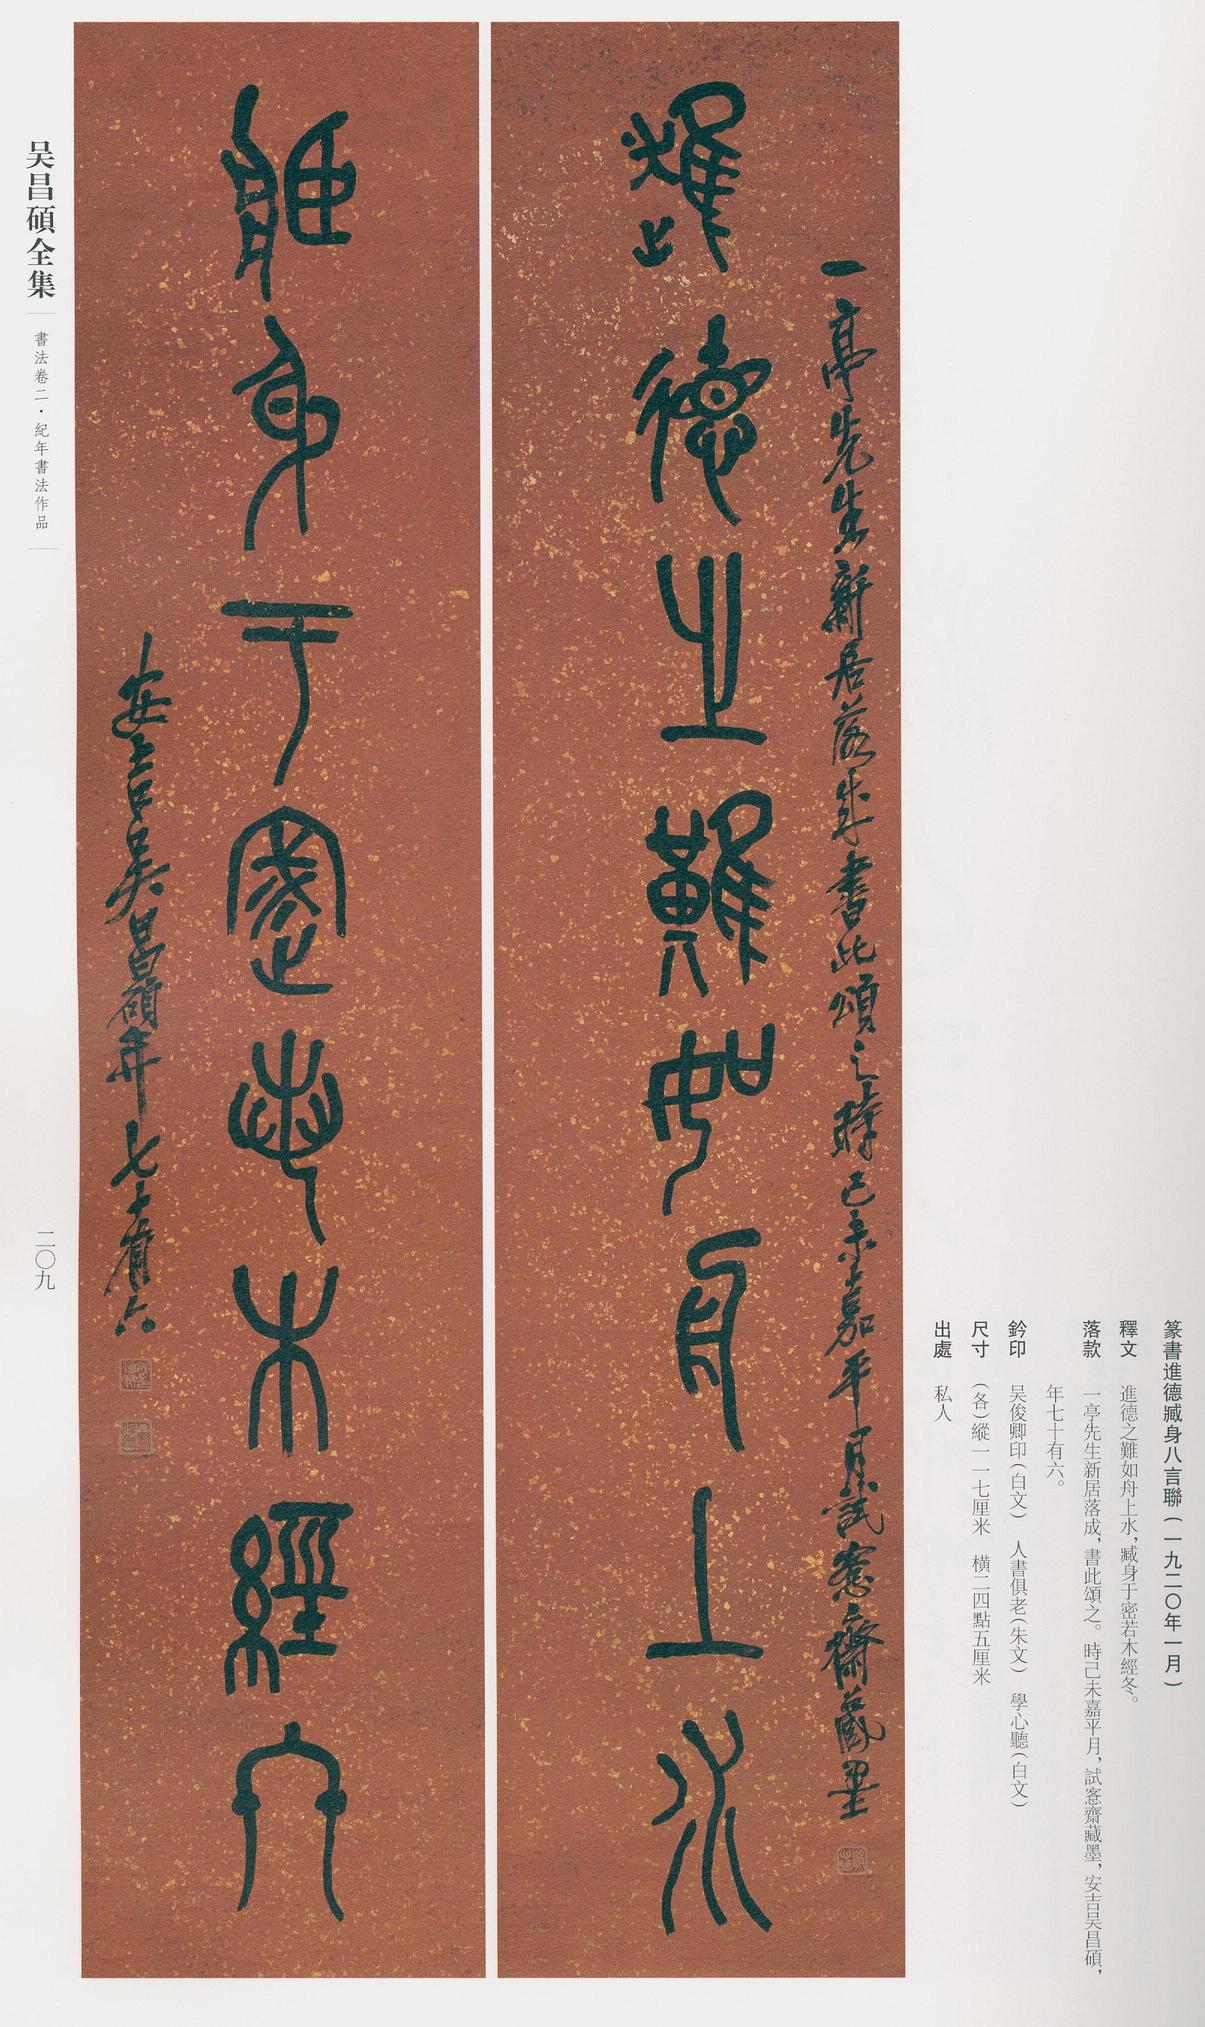 篆書進德臧身八言聯（一九二〇年一月）
釋文　進德之難如舟上水，臧身于密若木經冬。
落款　一亭先生新居落成，書此頌之。時己未嘉平月，試愙齋藏墨，安吉吴昌碩，
年七十有六。
鈐印　吴俊卿印（白文）　人書俱老（朱文）　學心聽（白文）
尺寸　（各）縱一一七厘米　横二四點五厘米
出處　私人
一亭先生新居落成書此頌之時己未嘉平月試愙齋藏墨
進德之難如舟上水
臧身于密若木經冬
安吉吴昌碩年七十有六
吴昌碩全集
書法卷二·紀年書法作品
二〇九